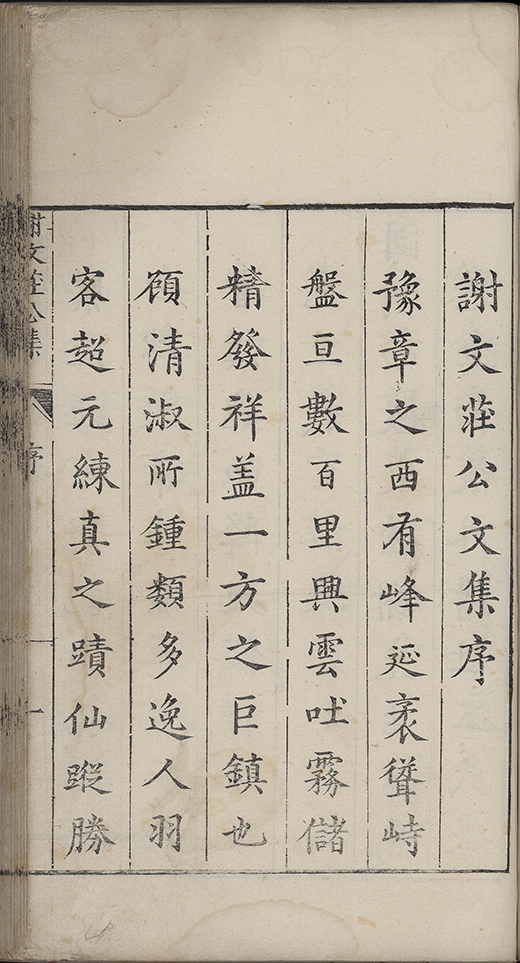 謝文莊公文集序
豫章之西有峰延袤聳峙
盤亘數百里興雲吐霧儲
精發祥盖一方之巨鎮也
頎清淑所鍾類多逸人羽
客超元練真之蹟仙蹤勝
謝文莊公集
序
一